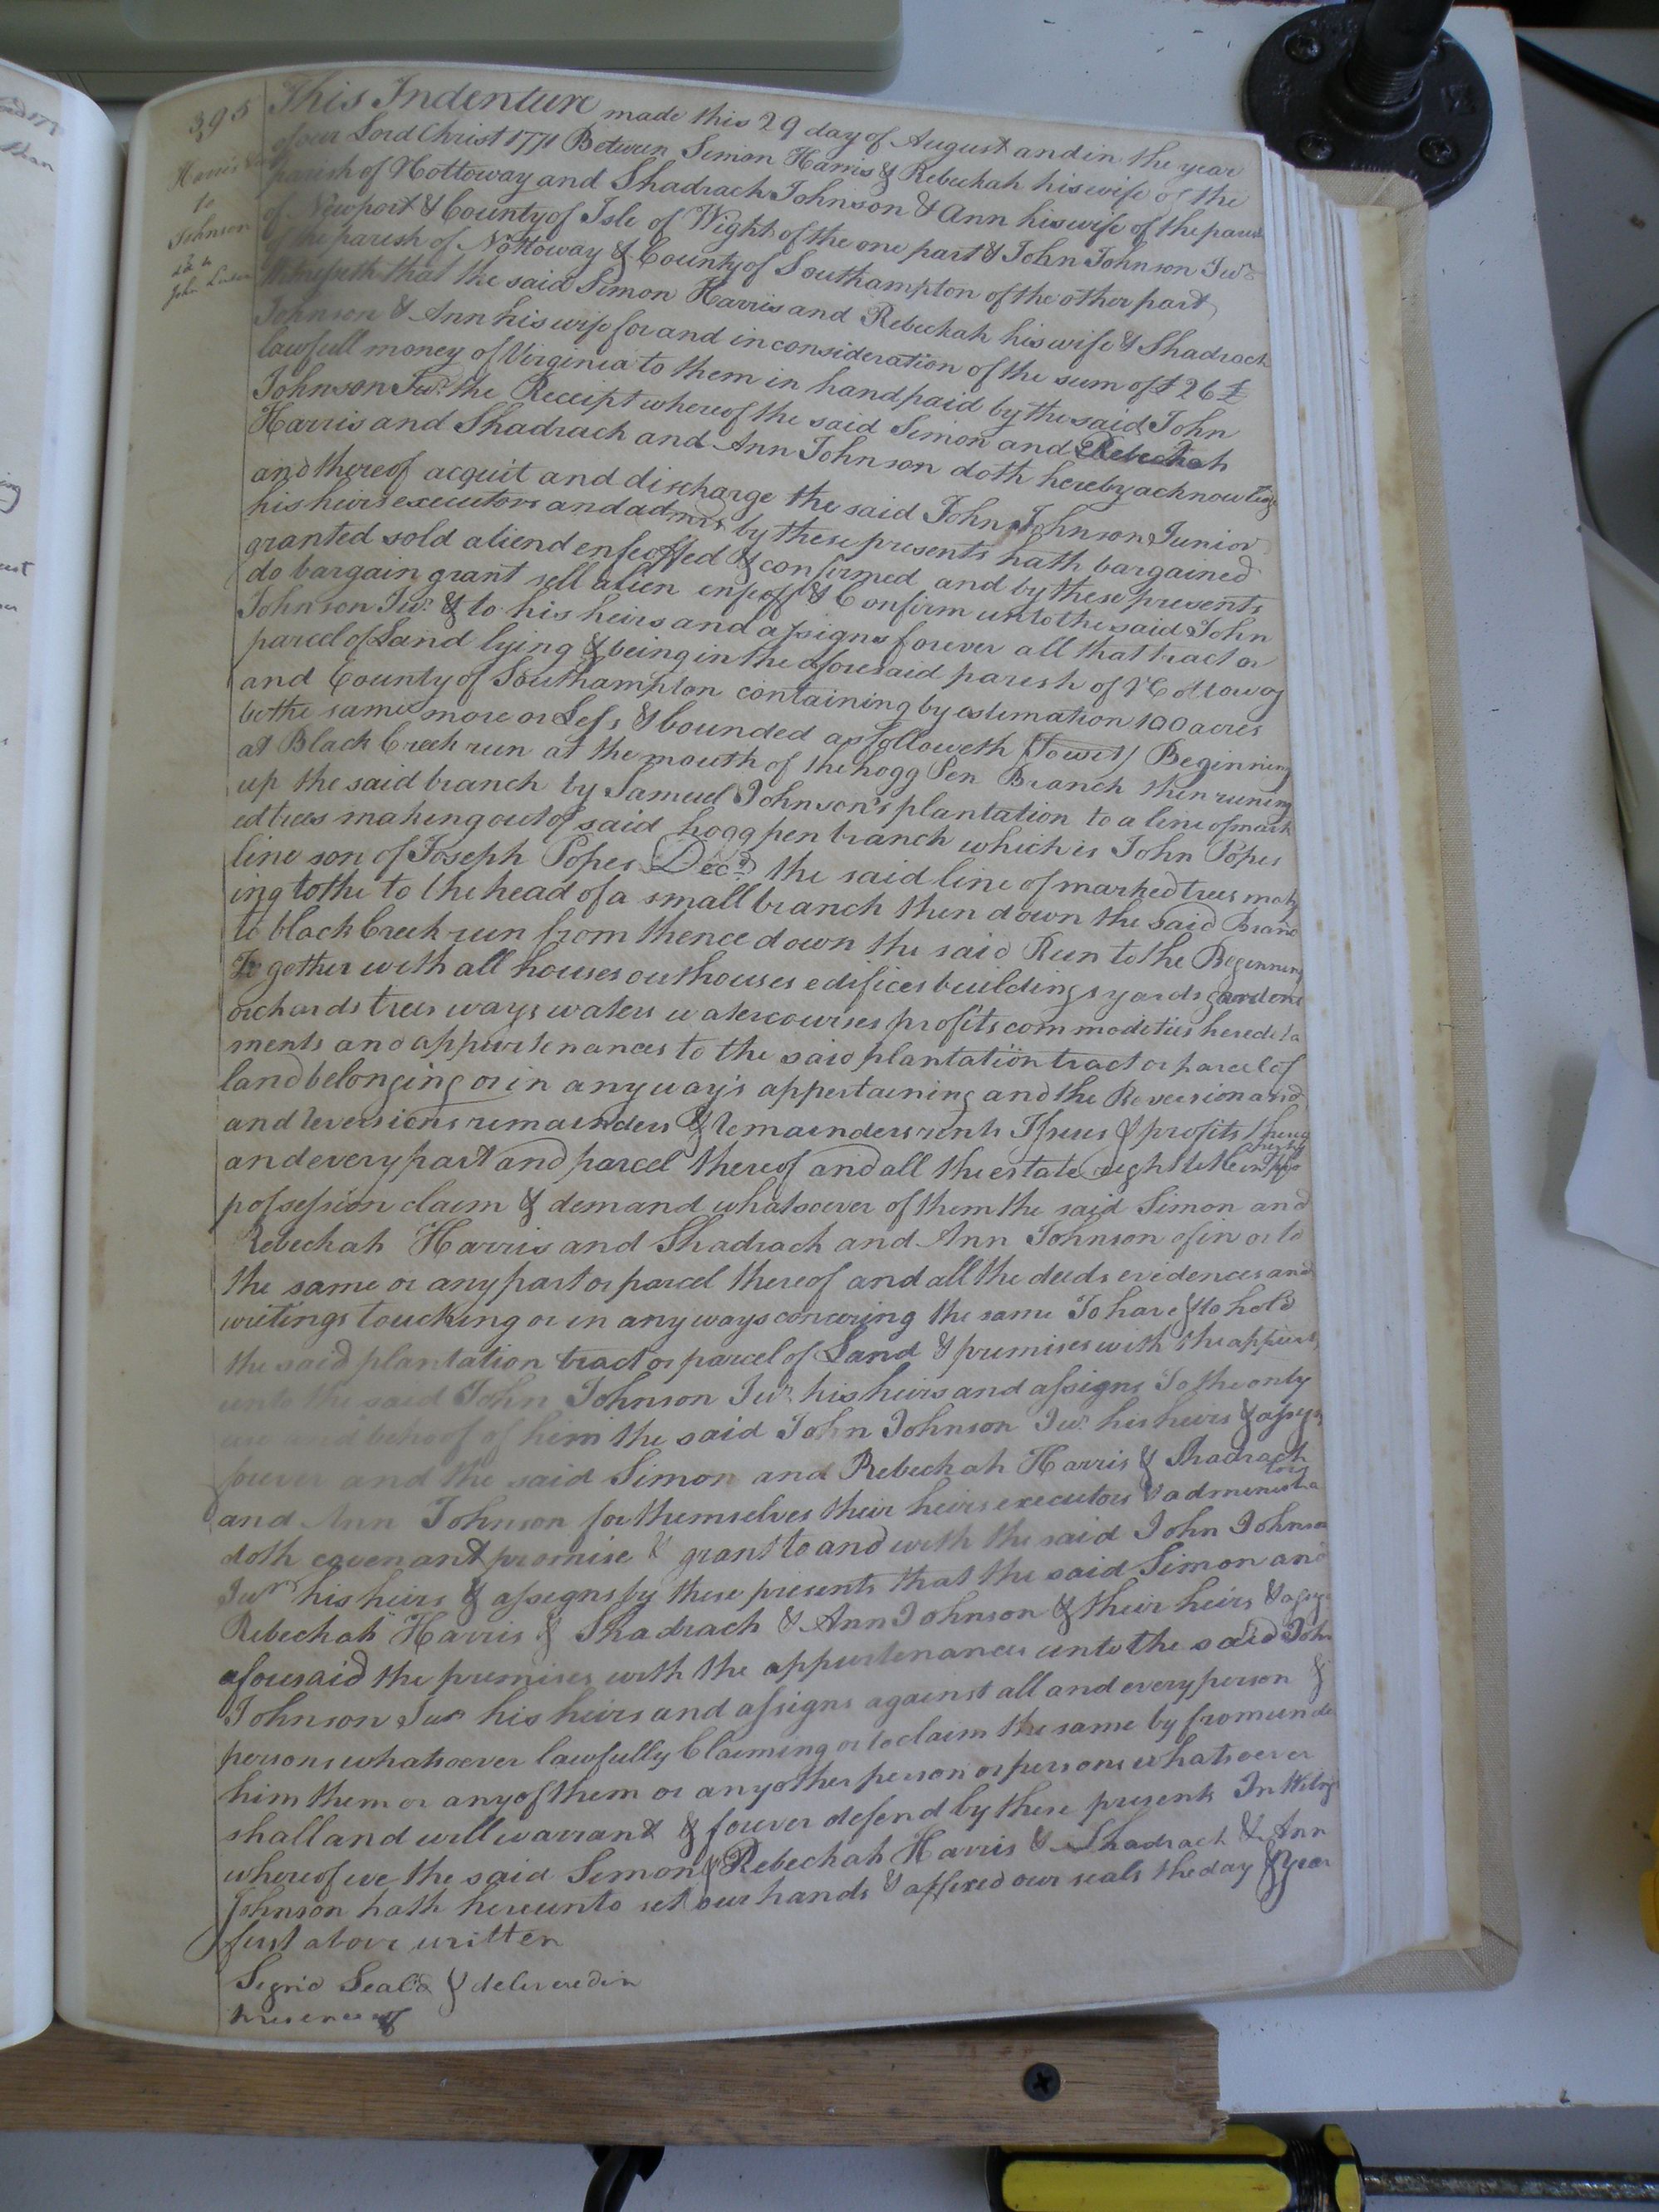 395
Harris &c
to
Johnson
This Indenture made this 29 day of August and in the year
of our Lord Christ 1771 Between Simon Harris & Rebeckah his wife of the
parish of Nottoway and Shadrach Johnson & Ann his wife of the parish
of Newport & County of Isle of Wight of the one part & John Johnson Junr
of the parish of Nottoway & County of Southampton of the other part
Witnesseth that the said Simon Harris and Rebeckah his wife & Shadrach
Johnson & Ann his wife for and in consideration of the sum of £26 £
lawfull money of Virginia to them in hand paid by the said John
Johnson Junr the Receipt whereof the said Simon and Rebeckah
Harris and Shadrach and Ann Johnson doth hereby acknowledge
and thereof acquit and discharge the said John Johnson Junior
his heirs executors and admrs by these presents hath bargained
granted sold aliend enfeoffed & confirmed and by these presents
do bargain grant sell alien enfeoff & Confirm unto the said John
Johnson Junr & to his heirs and assigns forever all that tract or
parcel of Land lying & being in the aforesaid parish of Nottoway
and County of Southampton containing by estimation 100 acres
be the same more or Less & bounded as followeth (Towit) Beginning
at Black Creek run at the mouth of the hogg Pen Branch then runing
up the said branch by Samuel Johnson's plantation to a line of mark
ed trees making out of said hogg pen branch which is John Popes
line son of Joseph Popes Decd the said line of marked trees mak
ing tothe to the head of a small branch then down the said Branc
to black Creek run from thence down the said Run to the Beginning
Together with all houses outhouses edifices buildings yards gardens
orchards trees ways waters watercourses profits commodeties heredeta
ments and appurtenances to the said plantation tract or parcel of
land belonging or in any way's appertaining and the Reversion and
and reversions remainders & remainders rents Issues & profits thereof
and every part and parcel thereof and all the estate right title
possession claim & demand whatsoever of them the said Simon and
Rebeckah Harris and Shadrach and Ann Johnson of in or to
the same or any part or parcel thereof and all the deeds evidences and
writings toucking or in any ways concering the same To have & to hold
the said plantation tract or parcel of Land & premises with the appurts
unto the said John Johnson Junr his heirs and assigns To the only
use and behoof of him the said John Johnson Junr his heirs & assigns
forever and the said Simon and Rebeckah Harris & Shadrach
and Ann Johnson for themselves their heirs executors & administra
tors
doth covenant promise & grant to and with the said John Johnson
Junr his heirs & assegns by these presents that the said Simon and
Rebeckah Harris & Shadrach & Ann Johnson & their heirs & assigs
aforesaid the premises with the appurtenances unto the said John
Johnson Junr his heirs and assigns against all and every person &
persons whatsoever lawfully Claiming or to claim the same by from unde
him them or any of them or any other person or persons whatsoever
shall and will warrant & forever defend by these presents In Witness
whereof we the said Simon & Rebeckah Harris & Shadrach & Ann
Johnson hath hereunto set our hands & affixed our seals the day & year
first above written
Signd Seal'd & delivered in
presence of